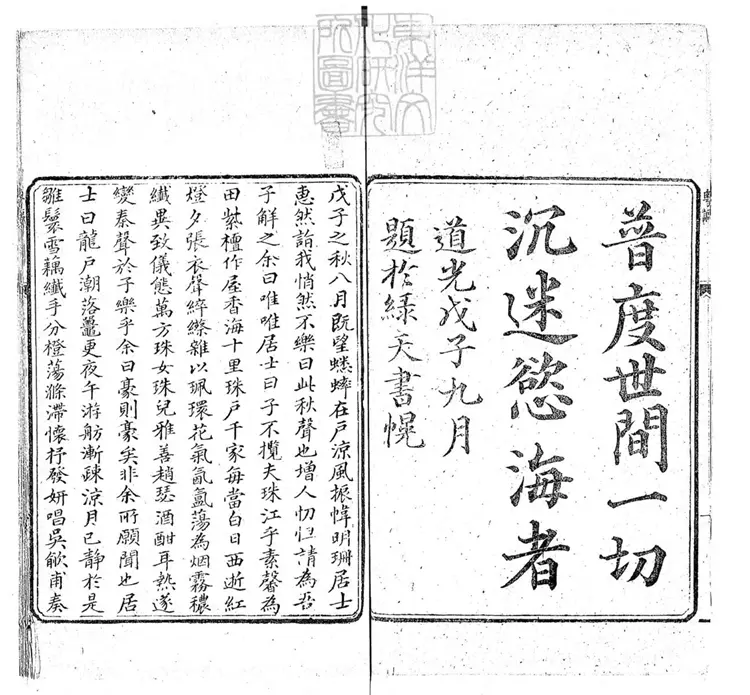 東洋文
化研究
所圖書
普度世間一切
沉迷慾海者
道光戊子九月
題於綠天書幌
戊子之秋八月既望蟋蟀在戶涼風振幃明珊居士
惠然詣我悄然不樂曰此秋聲也增人忉怛請為吾
子解之余曰唯唯居士曰子不攬夫珠江乎素馨為
田紫檀作屋香海十里珠戶千家每當白日西逝紅
燈夕張衣聲綷縩雜以珮環花氣氤氳蕩為烟霧穠
纖異致儀態萬方珠女珠兒雅善趙瑟酒酣耳熱遂
變秦聲於子樂乎余曰豪則豪矣非余所願聞也居
士曰龍戶潮落鼉更夜午游舫漸疎涼月已靜於是
雛鬟雪藕纖手分橙蕩滌滯懷抒發妍唱吳歈甫奏